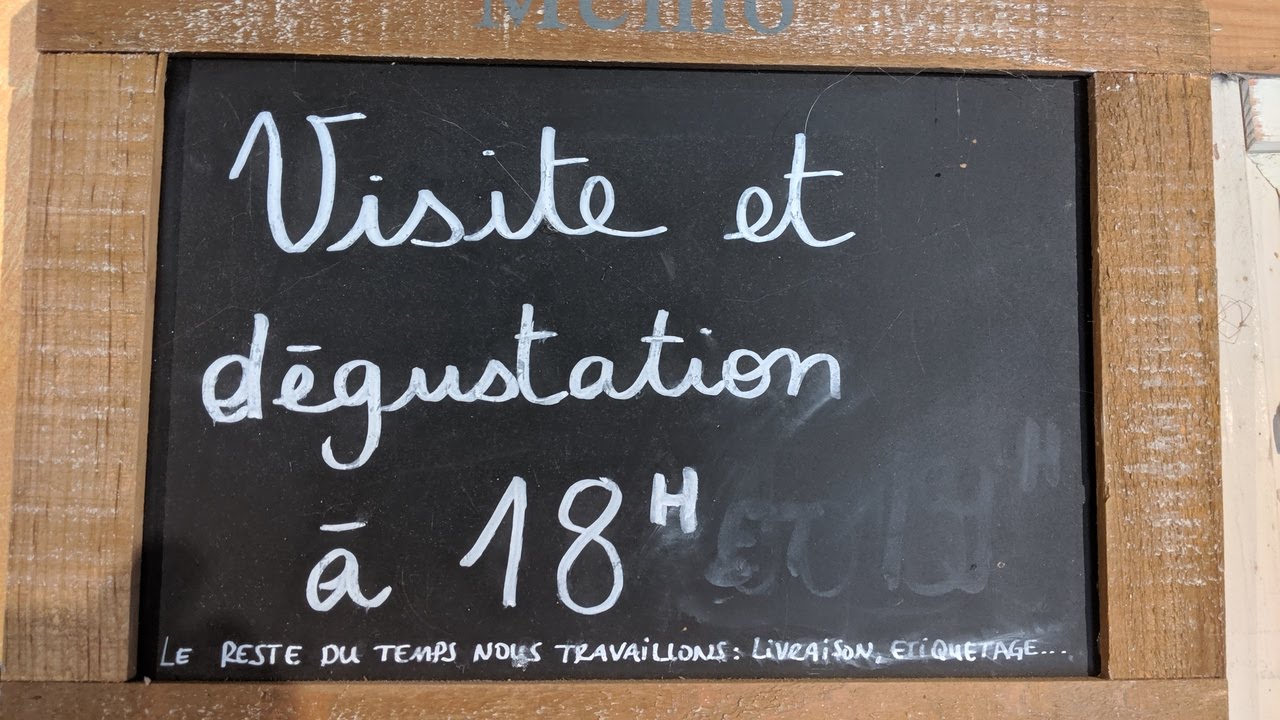 Memo
Visite et
dégustation
à 18H
LE RESTE DU TEMPS NOUS TRAVAILLONS: LIVRAISON, ETIQUETAGE...